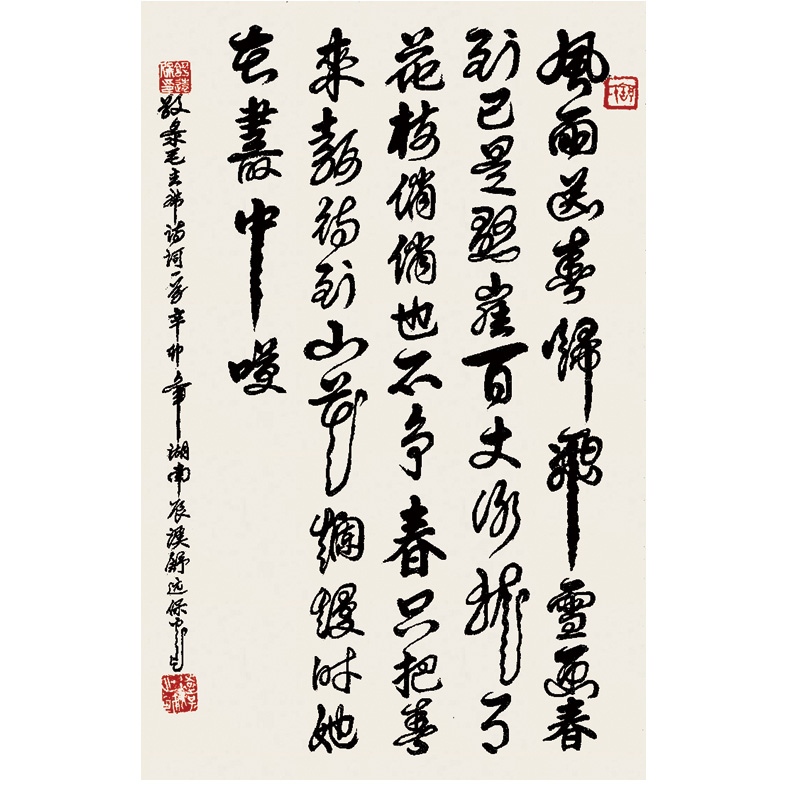 風雨送春歸飛雪迎春
到已是懸崖百丈冰猶有
花枝俏俏也不争春只把春
來報待到山花爛熳時她
在叢中咲
敬录毛主席诗词一首辛卯年湖南辰溪舒远保